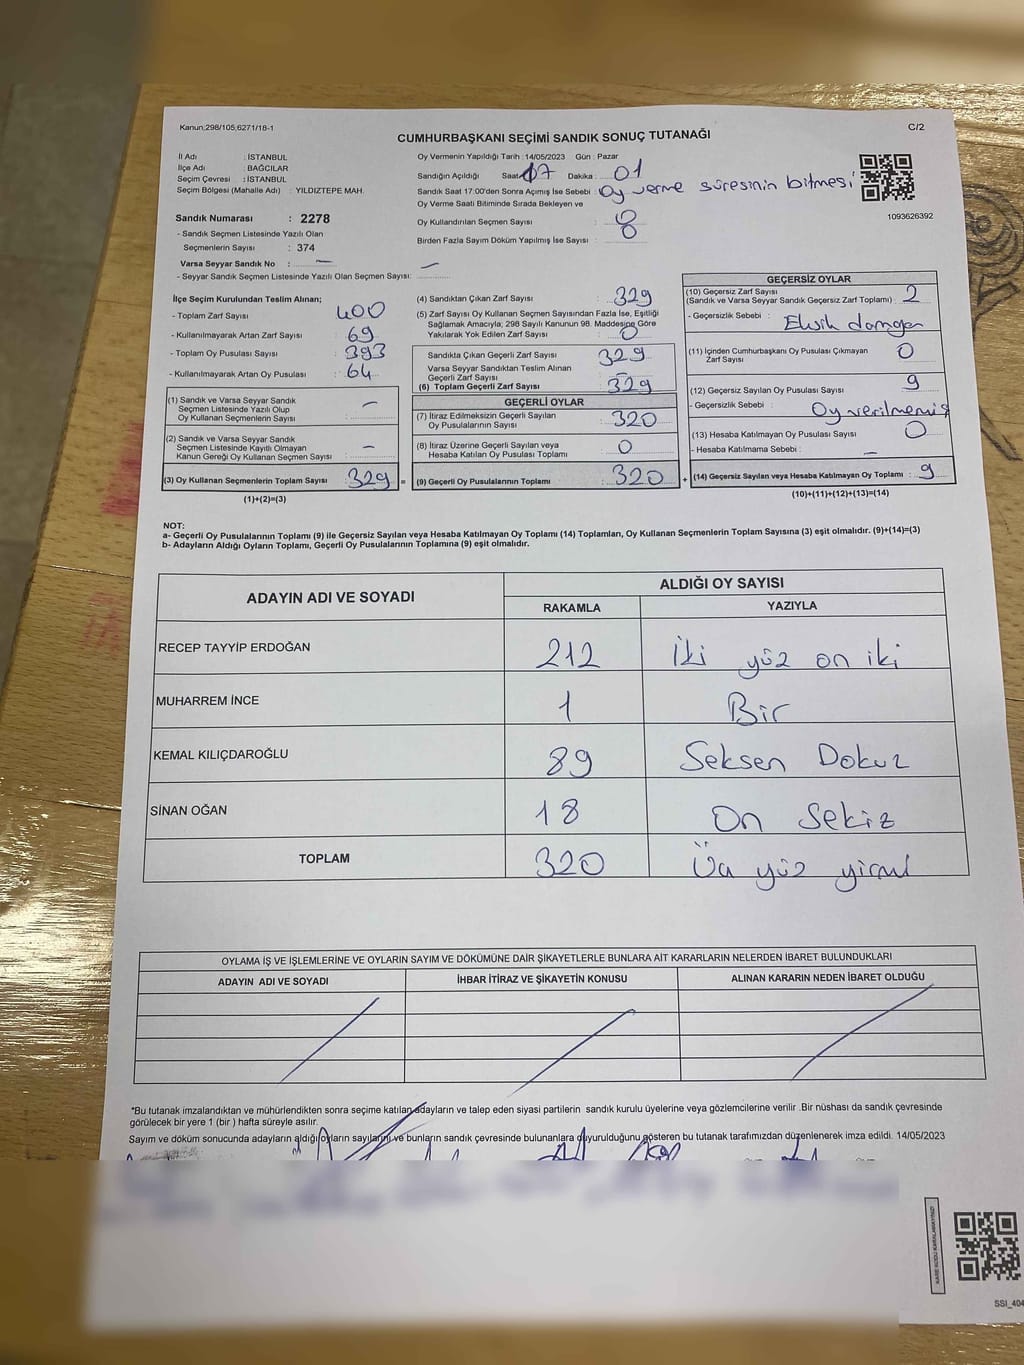 Kanun;298/105;6271/18-1
C/2
CUMHURBAŞKANI SEÇİMİ SANDIK SONUÇ TUTANAĞI
İl Adı : İSTANBUL
İlçe Adı : BAĞCILAR
Seçim Çevresi : İSTANBUL
Seçim Bölgesi (Mahalle Adı) : YILDIZTEPE MAH.
Sandık Numarası : 2278
- Sandık Seçmen Listesinde Yazılı Olan
Seçmenlerin Sayısı : 374
Varsa Seyyar Sandık No : —
- Seyyar Sandık Seçmen Listesinde Yazılı Olan Seçmen Sayısı: —
Oy Vermenin Yapıldığı Tarih : 14/05/2023 Gün : Pazar
Sandığın Açıldığı Saat 17 Dakika : 01
Sandık Saat 17:00'den Sonra Açımış İse Sebebi : Oy verme süresinin bitmesi
Oy Verme Saati Bitiminde Sırada Bekleyen ve
Oy Kullandırılan Seçmen Sayısı :
Birden Fazla Sayım Döküm Yapılmış İse Sayısı :
1093626392
İlçe Seçim Kurulundan Teslim Alınan;
- Toplam Zarf Sayısı : 400
- Kullanılmayarak Artan Zarf Sayısı : 69
- Toplam Oy Pusulası Sayısı : 393
- Kullanılmayarak Artan Oy Pusulası : 64
(1) Sandık ve Varsa Seyyar Sandık
Seçmen Listesinde Yazılı Olup
Oy Kullanan Seçmenlerin Sayısı : —
(2) Sandık ve Varsa Seyyar Sandık
Seçmen Listesinde Kayıtlı Olmayan
Kanun Gereği Oy Kullanan Seçmen Sayısı : —
(3) Oy Kullanan Seçmenlerin Toplam Sayısı 329 =
(1)+(2)=(3)
(4) Sandıktan Çıkan Zarf Sayısı : 329
(5) Zarf Sayısı Oy Kullanan Seçmen Sayısından Fazla İse, Eşitliği
Sağlamak Amacıyla; 298 Sayılı Kanunun 98. Maddesine Göre
Yakılarak Yok Edilen Zarf Sayısı : 0
Sandıkta Çıkan Geçerli Zarf Sayısı 329
Varsa Seyyar Sandıktan Teslim Alınan
Geçerli Zarf Sayısı : —
(6) Toplam Geçerli Zarf Sayısı : 329
GEÇERLİ OYLAR
(7) İtiraz Edilmeksizin Geçerli Sayılan
Oy Pusulalarının Sayısı : 320
(8) İtiraz Üzerine Geçerli Sayılan veya
Hesaba Katılan Oy Pusulası Toplamı : 0
(9) Geçerli Oy Pusulalarının Toplamı : 320 +
GEÇERSİZ OYLAR
(10) Geçersiz Zarf Sayısı
(Sandık ve Varsa Seyyar Sandık Geçersiz Zarf Toplamı) : 2
- Geçersizlik Sebebi :
(11) İçinden Cumhurbaşkanı Oy Pusulası Çıkmayan
Zarf Sayısı : 0
(12) Geçersiz Sayılan Oy Pusulası Sayısı : 9
- Geçersizlik Sebebi : Oy verilmemiş
(13) Hesaba Katılmayan Oy Pusulası Sayısı : 0
- Hesaba Katılmama Sebebi : —
(14) Geçersiz Sayılan veya Hesaba Katılmayan Oy Toplamı : 9
(10)+(11)+(12)+(13)=(14)
NOT:
a- Geçerli Oy Pusulalarının Toplamı (9) ile Geçersiz Sayılan veya Hesaba Katılmayan Oy Toplamı (14) Toplamları, Oy Kullanan Seçmenlerin Toplam Sayısına (3) eşit olmalıdır. (9)+(14)=(3)
b- Adayların Aldığı Oyların Toplamı, Geçerli Oy Pusulalarının Toplamına (9) eşit olmalıdır.
ADAYIN ADI VE SOYADI ALDIĞI OY SAYISI
RAKAMLA YAZIYLA
RECEP TAYYİP ERDOĞAN 212 İki yüz on iki
MUHARREM İNCE 1 Bir
KEMAL KILIÇDAROĞLU 89 Seksen Dokuz
SİNAN OĞAN 18 On Sekiz
TOPLAM 320 Üç yüz yirmi
OYLAMA İŞ VE İŞLEMLERİNE VE OYLARIN SAYIM VE DÖKÜMÜNE DAİR ŞİKAYETLERLE BUNLARA AİT KARARLARIN NELERDEN İBARET BULUNDUKLARI
ADAYIN ADI VE SOYADI İHBAR İTİRAZ VE ŞİKAYETİN KONUSU ALINAN KARARIN NEDEN İBARET OLDUĞU
*Bu tutanak imzalandıktan ve mühürlendikten sonra seçime katılan adayların ve talep eden siyasi partilerin sandık kurulu üyelerine veya gözlemcilerine verilir .Bir nüshası da sandık çevresinde
görülecek bir yere 1 (bir ) hafta süreyle asılır.
Sayım ve döküm sonucunda adayların aldığı oyların sayılarını ve bunların sandık çevresinde bulunanlara duyurulduğunu gösteren bu tutanak tarafımızdan düzenlenerek imza edildi. 14/05/2023